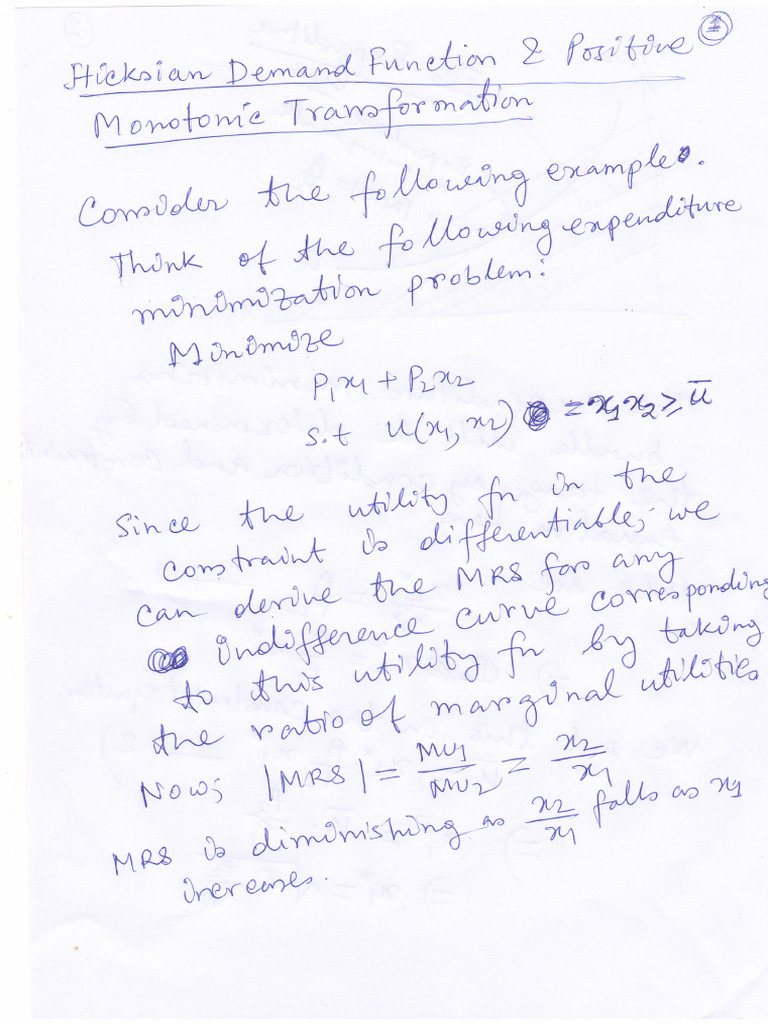 1
Hicksian Demand Function & Positive
Monotonic Transformation
Consider the following example.
Think of the following expenditure
minimization problem:
Minimize
P₁x₁ + P₂x₂
s.t u(x₁, x₂) = x₁x₂ ≥ ū
Since the utility fn in the
constraint is differentiable, we
can derive the MRS for any
indifference curve corresponding
to this utility fn by taking
the ratio of marginal utilities
Now, |MRS| = MU₁/MU₂ = x₂/x₁
MRS is diminishing as x₂/x₁ falls as x₁
increases.